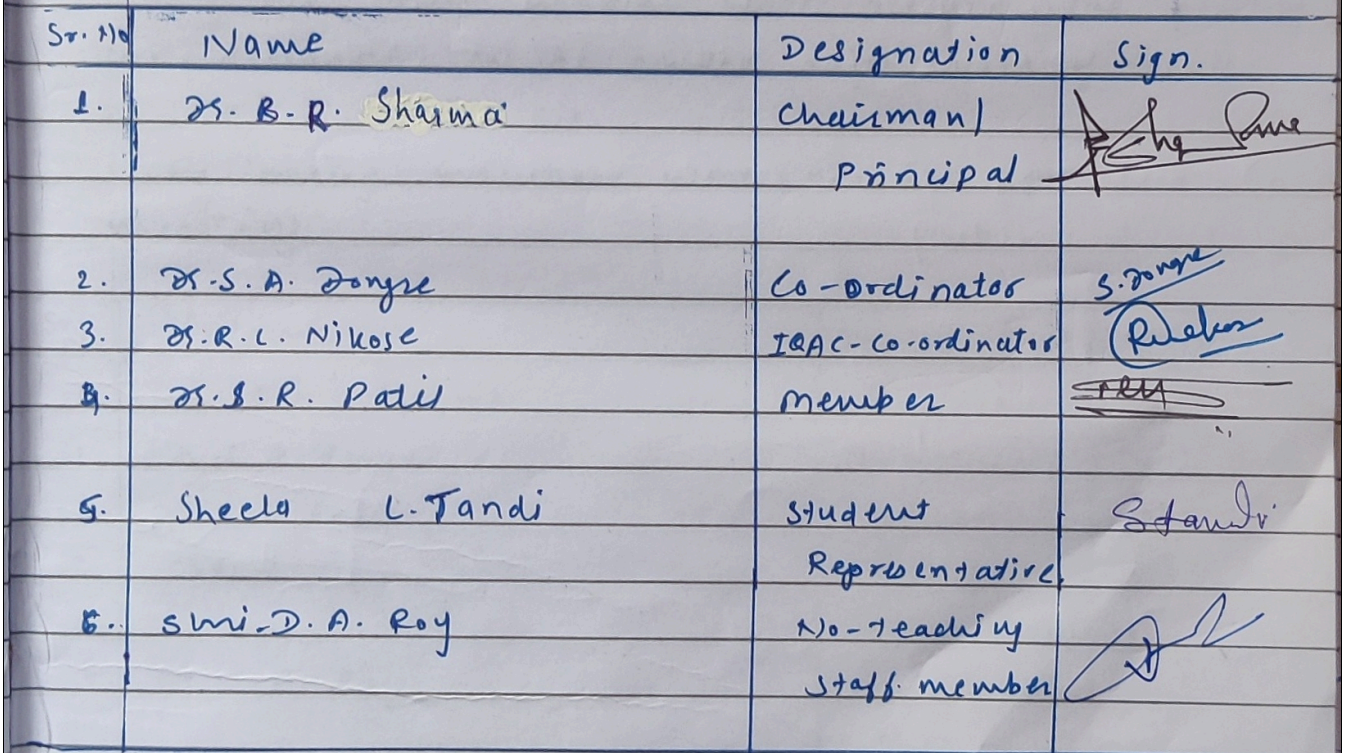 Sr. No Name Designation Sign.
1. Dr. B. R. Sharma Chairman/
Principal
2. Dr. S. A. Dongre Co-ordinator S. Dongre
3. Dr. R. L. Nikose IQAC-Co-ordinator
4. Dr. S. R. Patil member
5. Sheela L. Tandi Student Standi
Representative
6. smi. D. A. Roy No-teaching
staff member